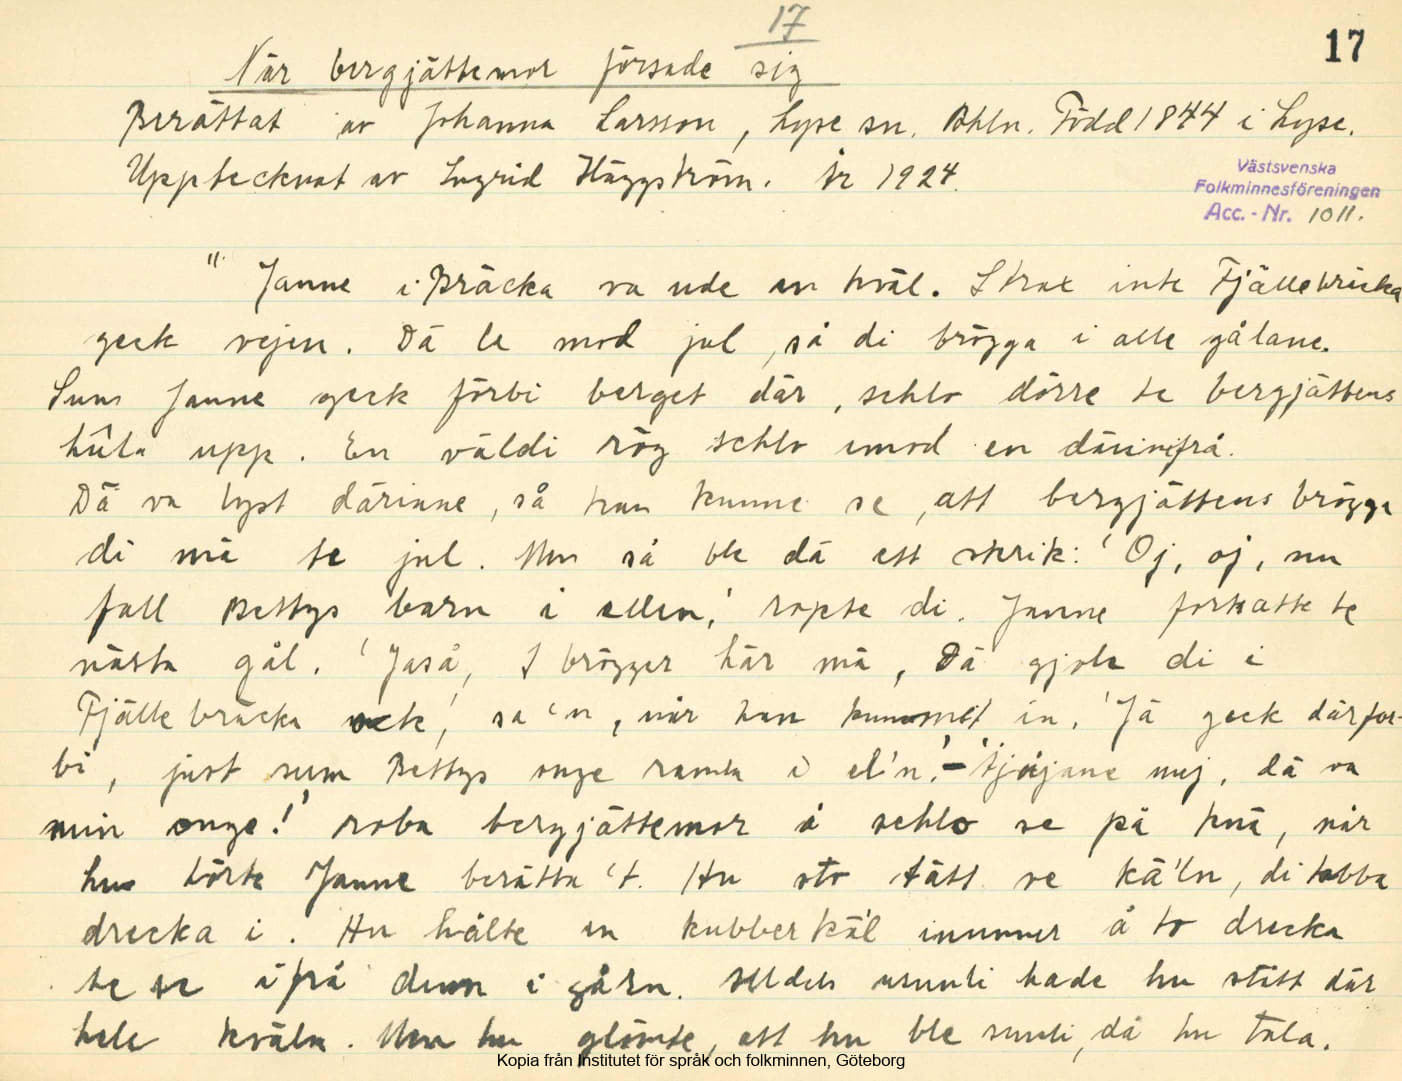 17
17
När bergjättemor försade sig
Berättat av Johanna Larsson, Lyse sn. Bhln. Född 1844 i Lyse.
Upptecknat av Ingrid Häggström. År 1924.
Västsvenska
Folkminnesföreningen
Acc.-Nr. 1011.
"Janne i Bräcka va ude en kväl. Strax inte Fjällebräcka
geck vejen. Dä le mod jul, så di brögga i alle gålane.
Sum Janne geck förbi berget där, schlo dörre te bergjättens
hûla upp. En väldi rög schlo emod en däuinifrå.
Dä va lyst därinne, så han kunne se, att bergjättens brögga
di mä te jul. Men så ble dä ett skrik: 'Oj, oj, nu
fall Bettys barn i ellen,' ropte di. Janne fortsatte te
nästa gål. 'Jaså, I brögger här mä, Dä gjole di i
Fjällebräcka ock', sa 'n, när han kummet in. 'Jä geck därfor-
bi, just sum Bettys onge ramla i el'n.' – 'Tjöjane mej, dä va
min onge!' roba bergjättemor å schlo se på knä, när
hun hörte Janne berätta 't. Hu sto tätt ve kä'ln, di tabba
drecka i. Hu hålte en kubberkäl inunner å to drecka
te se ifrå dum i gårn. Alldeles usunli hade hu stått där
hele kväln. Men hu glömte, att hu ble sunli, då hu tala.
Kopia från Institutet för språk och folkminnen, Göteborg